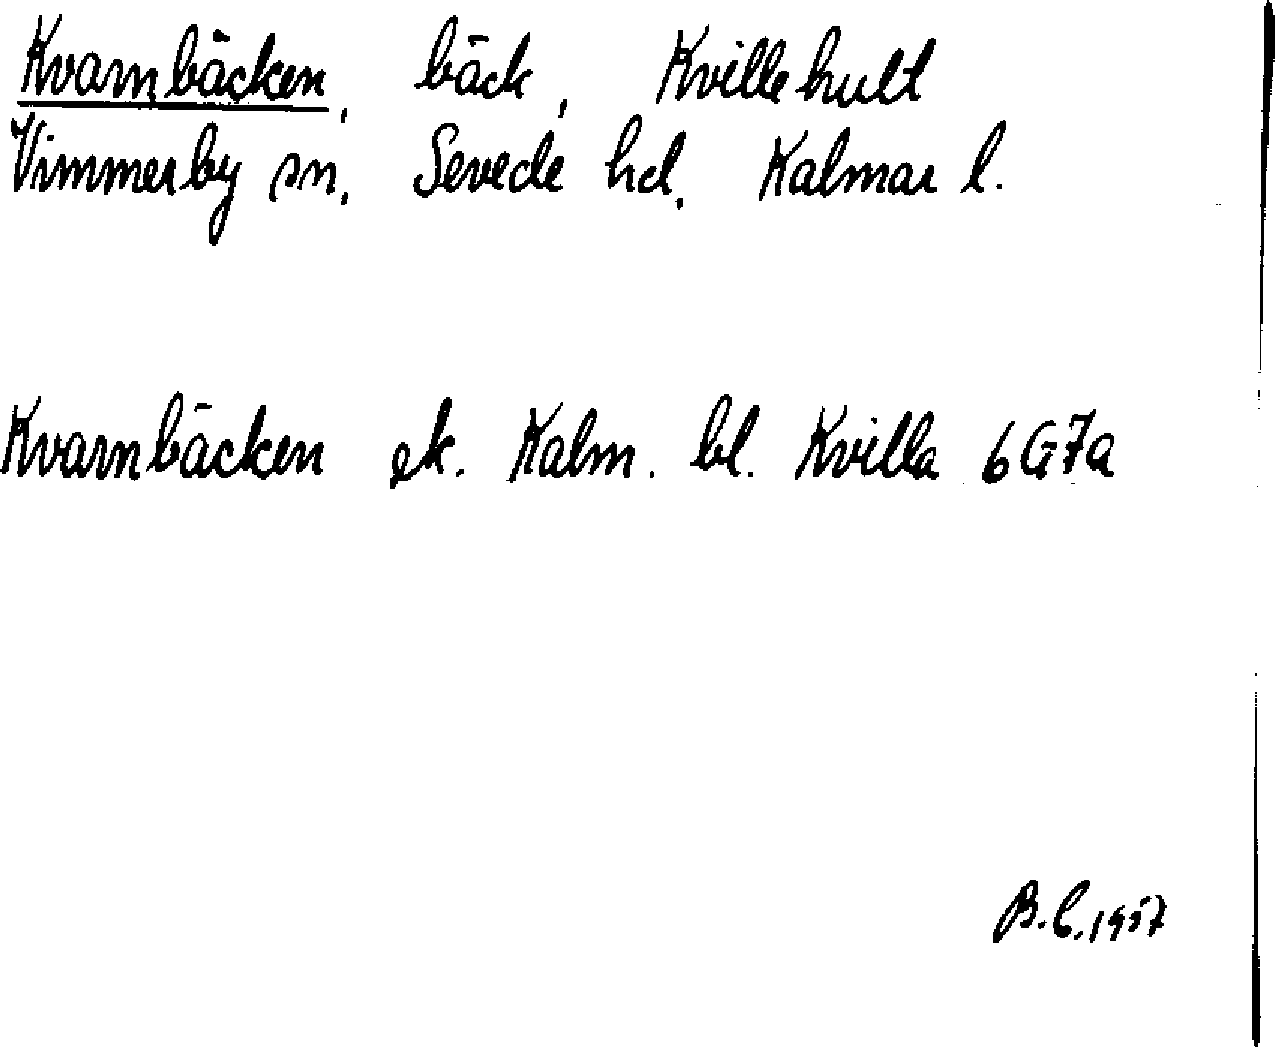 Kvarnbäcken, bäck, Kvillehult
Vimmerby sn. Sevede hd. Kalmar l.
Kvarnbäcken ek. Kalm. bl. Kvilla 6G7a
B.C. 1957